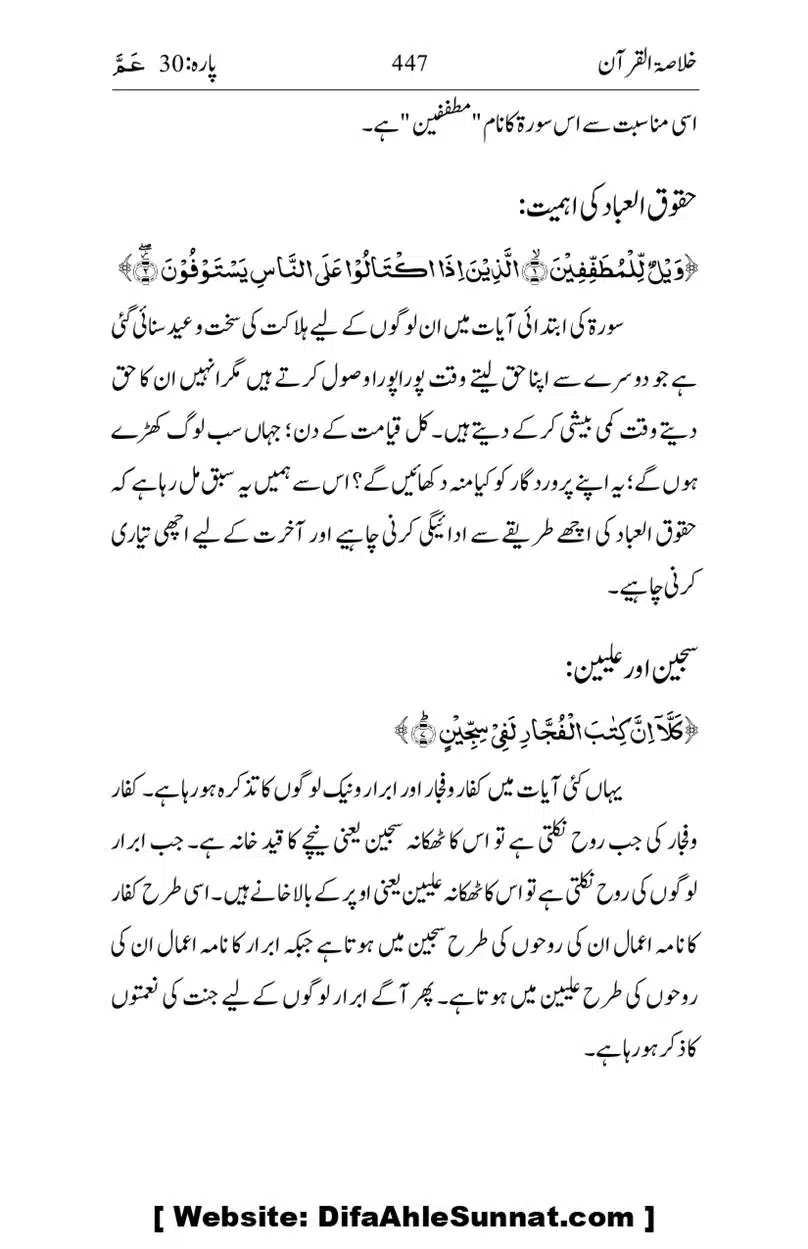 خلاصۃ القرآن 447 پارہ:30 عَمَّ
اسی مناسبت سے اس سورۃ کا نام "مطففین" ہے۔
حقوق العباد کی اہمیت:
﴿وَيْلٌ لِّلْمُطَفِّفِيْنَ ۙ﴿۱﴾ الَّذِيْنَ اِذَا اكْتَالُوْا عَلَى النَّاسِ يَسْتَوْفُوْنَ ۫ۖ﴿۲﴾﴾
سورۃ کی ابتدائی آیات میں ان لوگوں کے لیے ہلاکت کی سخت وعید سنائی گئی
ہے جو دوسرے سے اپنا حق لیتے وقت پورا پورا وصول کرتے ہیں مگر انہیں ان کا حق
دیتے وقت کمی بیشی کر کے دیتے ہیں۔ کل قیامت کے دن؛ جہاں سب لوگ کھڑے
ہوں گے؛ یہ اپنے پروردگار کو کیا منہ دکھائیں گے؟ اس سے ہمیں یہ سبق مل رہا ہے کہ
حقوق العباد کی اچھے طریقے سے ادائیگی کرنی چاہیے اور آخرت کے لیے اچھی تیاری
کرنی چاہیے۔
سجین اور علیین:
﴿كَلَّاۤ اِنَّ كِتٰبَ الْفُجَّارِ لَفِيْ سِجِّيْنٍ ؕ﴿۷﴾﴾
یہاں کئی آیات میں کفار وفجار اور ابرار ونیک لوگوں کا تذکرہ ہو رہا ہے۔ کفار
وفجار کی جب روح نکلتی ہے تو اس کا ٹھکانہ سجین یعنی نیچے کا قید خانہ ہے۔ جب ابرار
لوگوں کی روح نکلتی ہے تو اس کا ٹھکانہ علیین یعنی اوپر کے بالا خانے ہیں۔ اسی طرح کفار
کا نامہ اعمال ان کی روحوں کی طرح سجین میں ہوتا ہے جبکہ ابرار کا نامہ اعمال ان کی
روحوں کی طرح علیین میں ہوتا ہے۔ پھر آگے ابرار لوگوں کے لیے جنت کی نعمتوں
کا ذکر ہو رہا ہے۔
[ Website: DifaAhleSunnat.com ]